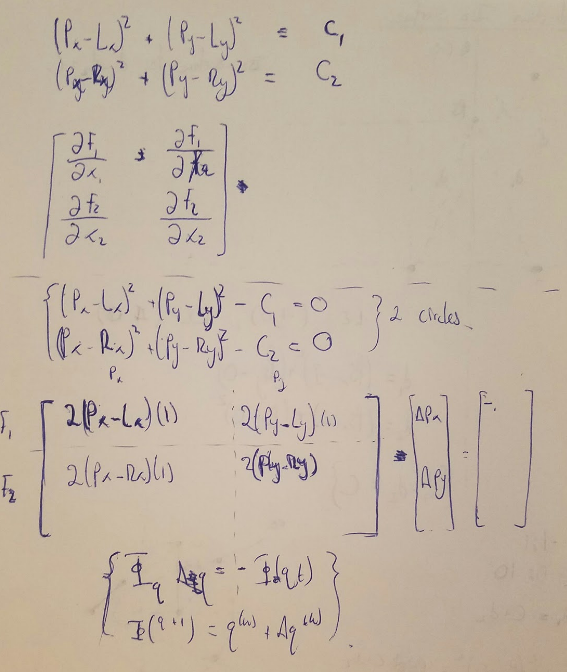 (Px-Lx)² + (Py-Ly)² = C₁
(Px-Rx)² + (Py-Ry)² = C₂
[ ∂F₁/∂x₁ ∂F₁/∂x₂
∂f₂/∂x₂ ∂f₂/∂x₂ ]
{ (Px-Lx)² + (Py-Ly)² - C₁ = 0
(Px-Rx)² + (Py-Ry)² - C₂ = 0 } 2 circles.
Px Py
F₁ [ 2(Px-Lx)(1) 2(Py-Ly)(1) ] [ΔPx] = [-.]
F₂ [ 2(Px-Rx)(1) 2(Py-Ry) ] [ΔPy]
{ Φq Δq = - Φ(q,t) }
{ Φ^(q+1) = q^(n) + Δq^(n) }.